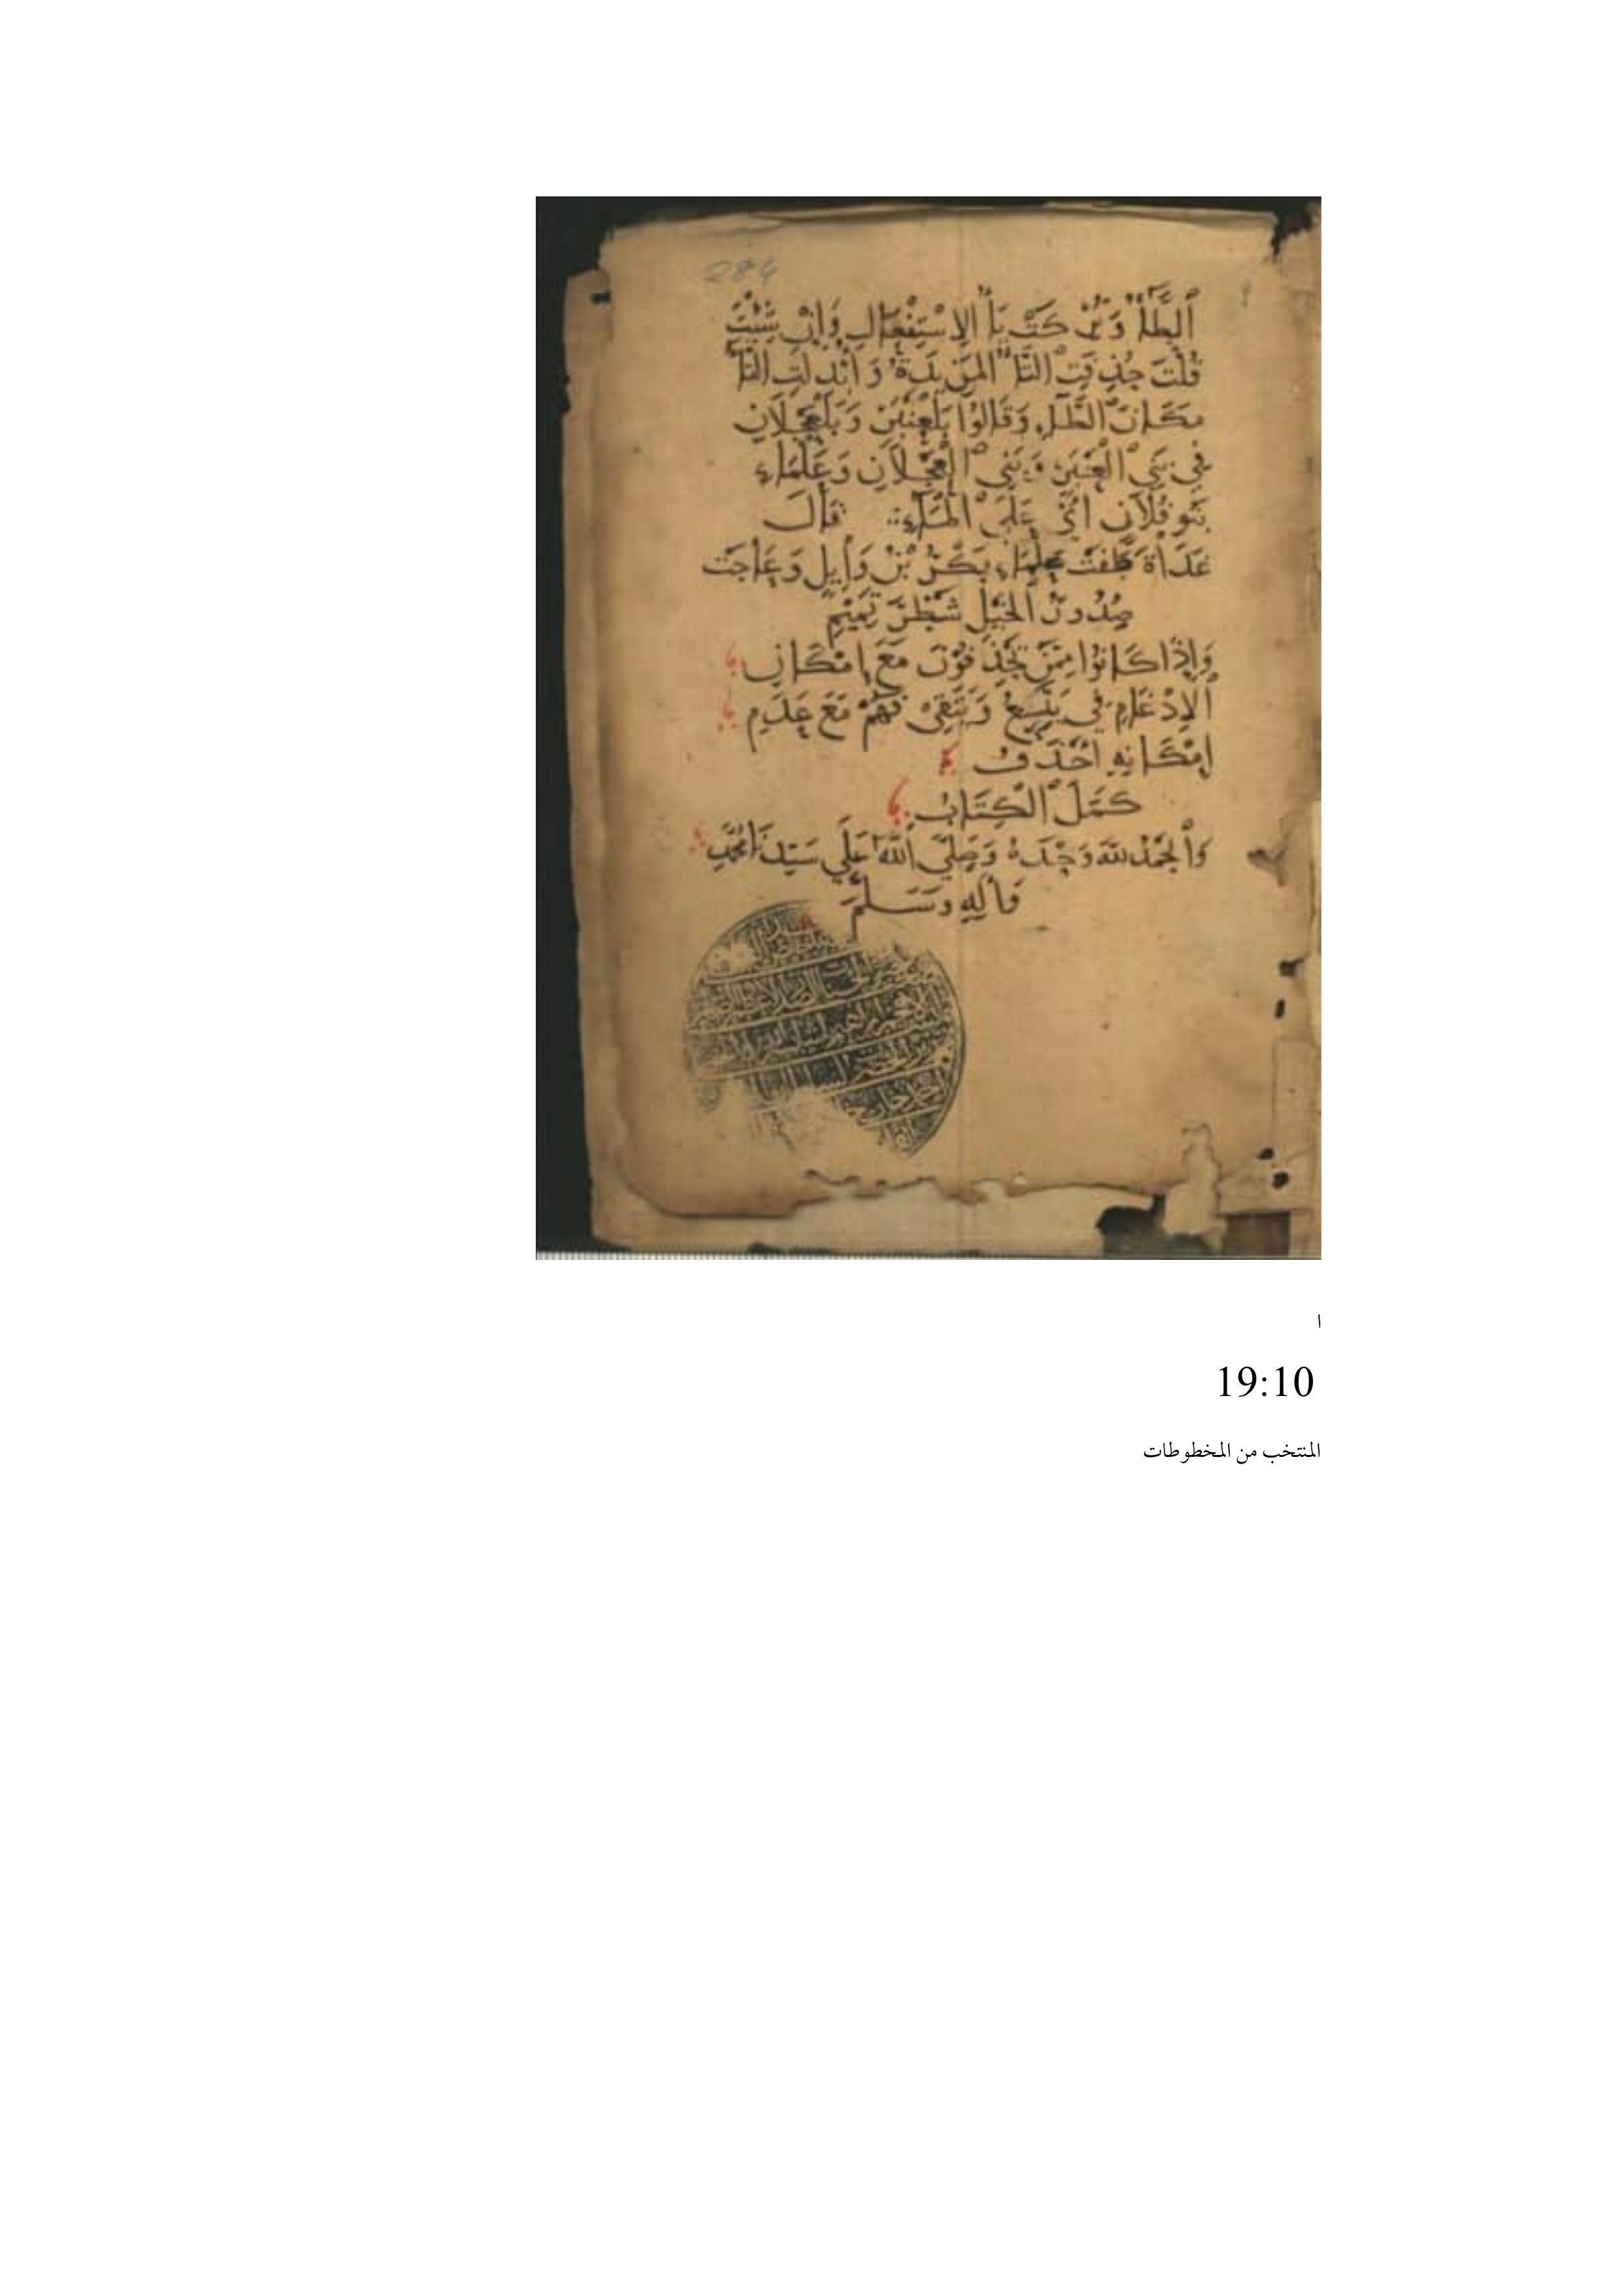 284
ٱلطَّاءُ وَتُرِكَتْ تَاءُ الِاسْتِفْعَالِ وَإِنْ شِئْتَ
قُلْتَ حُذِفَتِ ٱلتَّاءُ ٱلْمَزِيدَةُ وَأُبْدِلَتِ التَّاءُ
مَكَانَ ٱلطَّاءِ وَقَالُوا بَلْعَنْبَرِ وَبَلْعَجْلَانِ
فِي بَنِي ٱلْعَنْبَرِ وَبَنِي ٱلْعَجْلَانِ وَعَلْمَاءِ
بَنُو فُلَانٍ أَيْ عَلَى ٱلْمَاءِ قَالَ
غَدَاةَ طَفَتْ عَلْمَاءِ بَكْرُ بْنُ وَايِلٍ وَعَاجَتْ
صُدُورَ ٱلْخَيْلِ شَطْرَ تَمِيمِ
وَإِذَا كَانُوا مِمَّنْ يَحْذِفُونَ مَعَ إِمْكَانِ
ٱلِادْغَامِ فِي يَتَّسِعُ وَيَتَّقِي فَهُمْ مَعَ عَدَمِ
إِمْكَانِهِ أَحْذَفُ
كَمَلَ ٱلْكِتَابُ
وَٱلْحَمْدُ للهِ وَحْدَهُ وَصَلَّى ٱللهُ عَلَى سَيِّدِنَا مُحَمَّدٍ
وَآلِهِ وَسَلَّمَ
ا
19:10
المنتخب من المخطوطات